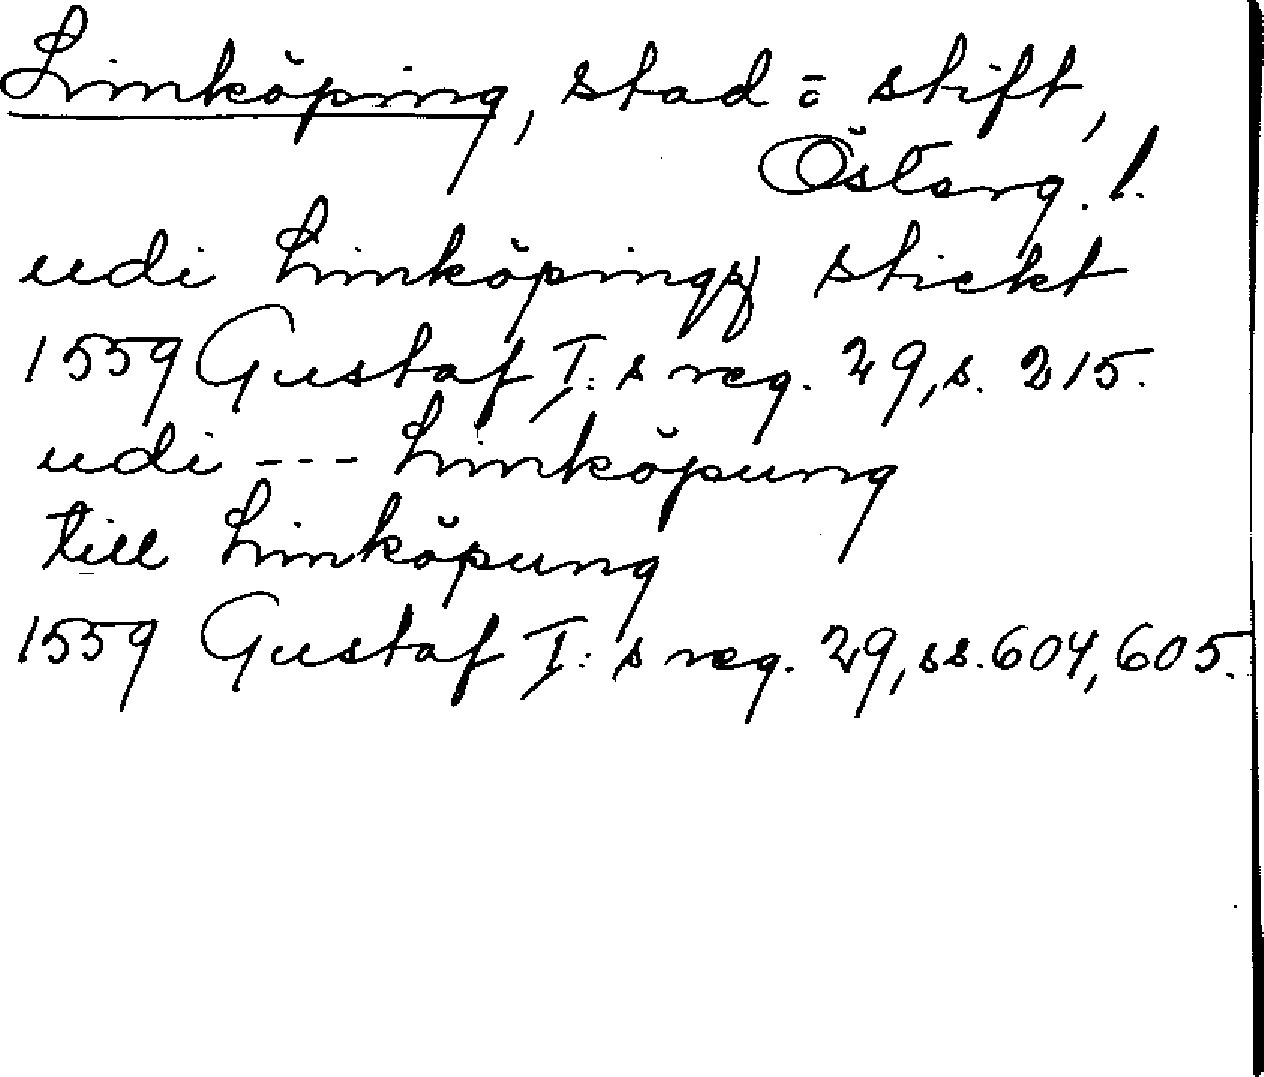 Linköping, stad o. stift,
Österg. l.
udi Linköpings stickt
1559 Gustaf I:s reg. 29, s. 215.
udi --- Linköpung
till Linköpung
1559 Gustaf I:s reg. 29, ss. 604, 605.